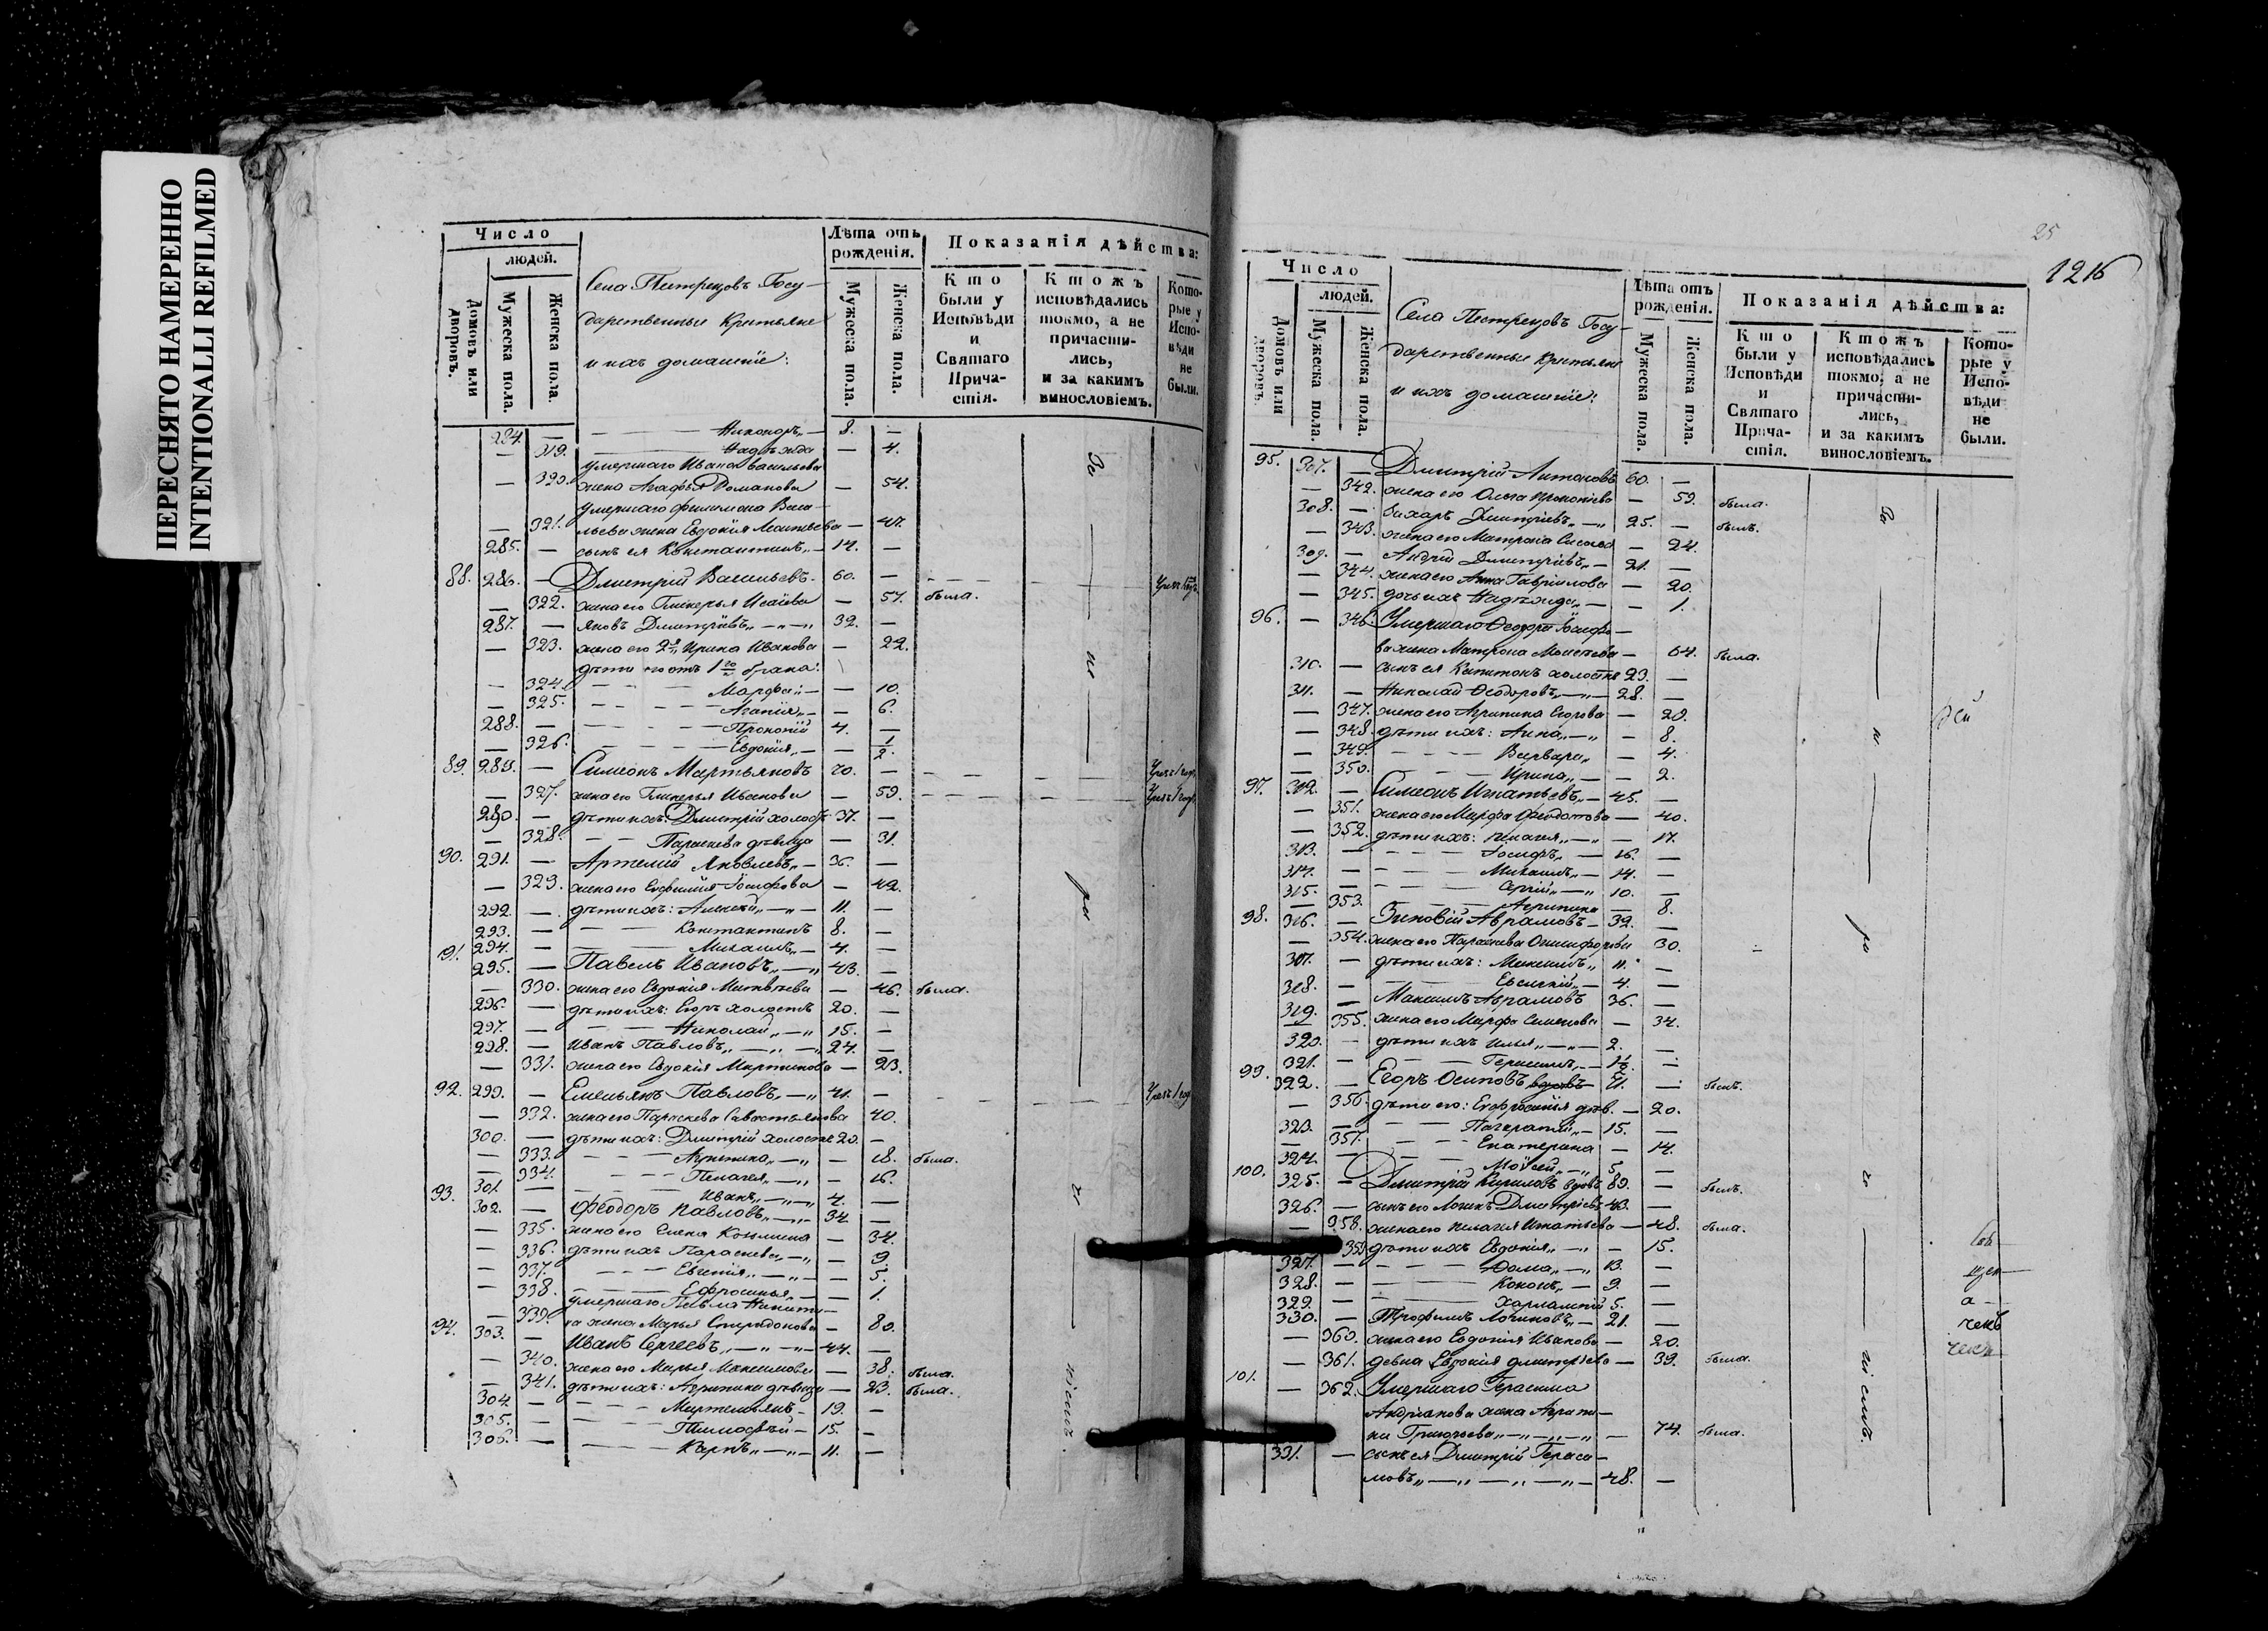 ПЕРЕСНЯТО НАМЕРЕННО
INTENTIONALLI REFILMED
Число
людей.
Домовъ или дворовъ.
Мужеска пола.
Женска пола.
Села Пестрецовъ Госу-
дарственные Крестьяне
и ихъ домашніе:
Лѣта отъ рожденія.
Мужеска пола.
Женска пола.
Показанія дѣйства:
Кто были у Исповѣди и Святаго Прича-стія.
Ктожъ исповѣдались токмо, а не причасти-лись, и за какимъ винословіемъ.
Кото-рые у Испо-вѣди не были.
284. — Никаноръ — 8. —
— 319. Надежда — 4.
умершаго Ивана Васильева
— 320. жена Агафья Романова — 54.
умершаго Филимона Васи-
— 321. льева жена Евдокія Леонтьева — 47.
285. — сынъ ея Константинъ — 14. —
88. 286. — Дмитрій Васильевъ 60. —
— 322. жена его Гликерья Исаіева — 57. была.
287. — Яковъ Дмитріевъ 32. —
— 323. жена его 2я Ирина Иванова — 22.
дѣти его отъ 1го брака:
— 324. Марфа — 10.
— 325. Агапія — 6.
288. — Прокопій 4. —
— 326. Евдокія — 1/2
89. 289. — Симеонъ Мартьяновъ 70. —
— 327. жена его Гликерья Иванова — 59.
290. — дѣти ихъ: Дмитрій холостъ 37. —
— 328. Параскева дѣвица — 31.
90. 291. — Артемій Яковлевъ 36. —
— 329. жена его Евфимія Іосифова — 42.
292. — дѣти ихъ: Алексѣй 11. —
293. — Константинъ 8. —
294. — Михаилъ 4. —
91. 295. — Павелъ Ивановъ 43. —
— 330. жена его Евдокія Матвѣева — 46. была.
296. — дѣти ихъ: Егоръ холостъ 20. —
297. — Николай 15. —
298. — Иванъ Павловъ 24. —
— 331. жена его Евдокія Мартинова — 23.
92. 299. — Емельянъ Павловъ 41. —
— 332. жена его Параскева Савастьянова 40.
300. — дѣти ихъ: Дмитрій холостъ 20. —
— 333. Агрипина — 18. была.
— 334. Пелагея — 16.
301. — Иванъ 4. —
93. 302. — Феодоръ Павловъ 34. —
— 335. жена его Елена Козмина — 34.
— 336. дѣти ихъ Параскева — 9.
— 337. Евгенія — 5.
— 338. Ефросинья — 1.
умершаго Павла Никити-
— 339. на жена Марья Спиридонова — 80.
94. 303. — Иванъ Сергеевъ 44. —
— 340. жена его Марья Максимова — 38. была.
— 341. дѣти ихъ: Агрипина дѣвица — 23. была.
304. — Мартемьянъ 19. —
305. — Тимофѣй 15. —
306. — Карпъ 11. —
25
1216
Число
людей.
Домовъ или дворовъ.
Мужеска пола.
Женска пола.
Села Пестрецовъ Госу-
дарственные Крестьяне
и ихъ домашніе:
Лѣта отъ рожденія.
Мужеска пола.
Женска пола.
Показанія дѣйства:
Кто были у Исповѣди и Святаго Прича-стія.
Ктожъ исповѣдались токмо, а не причасти-лись, и за какимъ винословіемъ.
Кото-рые у Испо-вѣди не были.
95. 307. — Дмитрій Антоновъ 60. —
— 342. жена его Ольга Прокопіева — 59. была.
308. — Захаръ Дмитріевъ 25. — былъ.
— 343. жена его Матрона Сисоева — 24.
309. — Андрей Дмитріевъ 21. —
— 344. жена его Анна Гавріилова — 20.
— 345. дочь ихъ Надежда — 1.
96. — 346. Умершаго Ѳеодора Іосифо-
ва жена Матрона Моисеева — 64. была.
310. — сынъ ея Капитонъ холостъ 23. —
311. — Николай Ѳеодоровъ 28. —
— 347. жена его Агрипина Егорова — 29.
— 348. дѣти ихъ: Анна — 8.
— 349. Варвара — 4.
— 350. Ирина — 2.
97. 312. — Симеонъ Игнатьевъ 45. —
— 351. жена его Марфа Ѳедотова — 40.
— 352. дѣти ихъ: Пелагея — 17.
313. — Іосифъ 16. —
314. — Михаилъ 14. —
315. — Сергій 10. —
— 353. Агрипина — 8.
98. 316. — Зиновій Аврамовъ 32. —
— 354. жена его Параскева Онисифорова 30.
317. — дѣти ихъ: Максимъ 11. —
318. — Евсигній 4. —
319. — Максимъ Аврамовъ 36. —
— 355. жена его Марфа Симеонова — 34.
320. — дѣти ихъ Илья 2. —
321. — Герасимъ 1/2. —
99. 322. — Егоръ Осиповъ вдовъ 51. — былъ.
— 356. дѣти его: Евфросинія дѣв. — 20.
323. — Панкратій 15. —
— 357. Екатерина — 14.
324. — Моѵсей 5. —
100. 325. — Дмитрій Кириловъ вдовъ 89. — былъ.
326. — сынъ его Логинъ Дмитріевъ 43. —
— 358. жена его Пелагея Игнатьева — 48. была.
359. дѣти ихъ Евдокія — 15.
327. — Ѳома 13. —
328. — Кононъ 9. —
329. — Харлампій 5. —
330. — Трофимъ Логиновъ 21. —
— 360. жена его Евдокія Иванова — 20.
— 361. девка Евдокія Дмитріева — 39. была.
101. — 362. Умершаго Герасима
Андріанова жена Агрипи-
на Григорьева — 74. была.
331. — сынъ ея Дмитрій Гераси-
мовъ 48. —